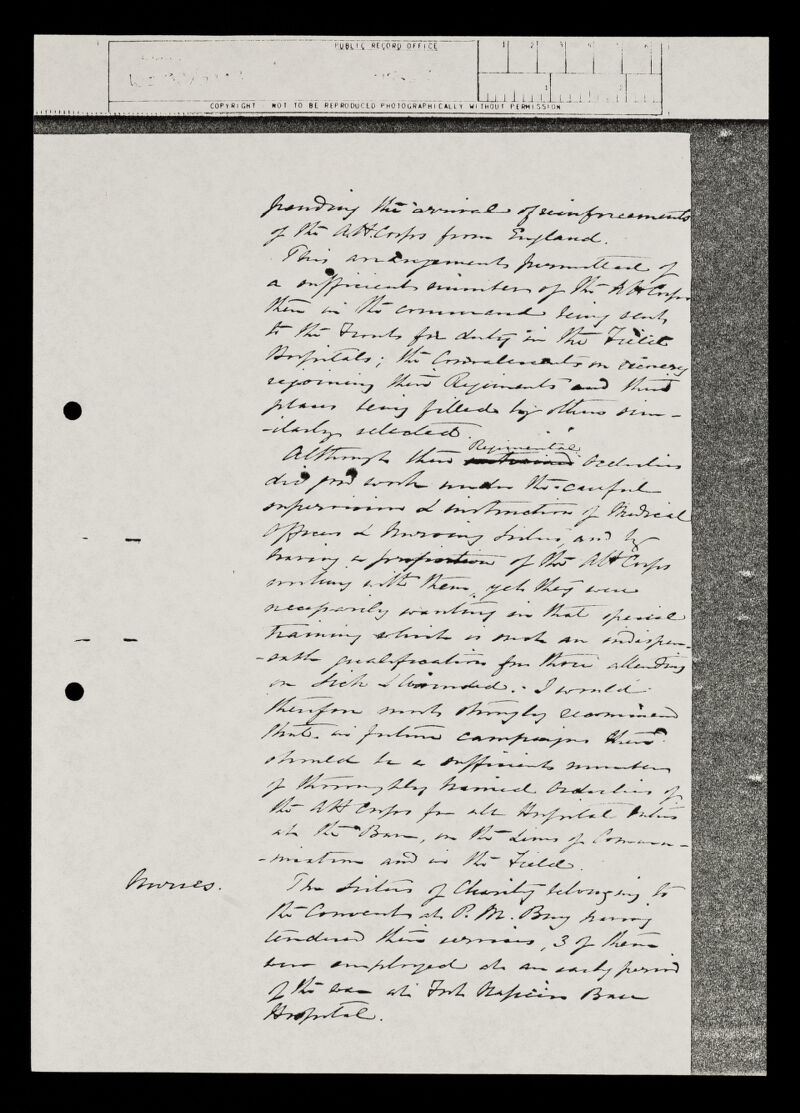 PUBLIC RECORD OFFICE
1 2 3 4 5 6
1 2
COPYRIGHT - NOT TO BE REPRODUCED PHOTOGRAPHICALLY WITHOUT PERMISSION
pending the arrival of reinforcements
of the A.H. Corps from England.
This arrangement permitted of
a sufficient number of the A H Corps
then in the command being sent
to the Front for duty in the Field
Hospitals; the Convalescents on recovery
rejoining their Regiments and their
places being filled by others sim-
-ilarly selected.
Regimental
Although these untrained Orderlies
did good work under the careful
supervision & instruction of Medical
Officers & Nursing Sisters, and by
having a proportion of the A H Corps
working with them, yet they were
necessarily wanting in that special
training which is such an indispen-
-sable qualification for those attending
on Sick & Wounded. I would
therefore most strongly recommend
that in future campaigns there
should be a sufficient number
of thoroughly trained Orderlies of
the A H Corps for all Hospital duties
at the Base, on the Lines of Commun-
-ication and in the Field.
Nurses.
The Sisters of Charity belonging to
the Convent at P. M. Burg having
tendered their services, 3 of them
were employed at an early period
of the war at Fort Napier Base
Hospital.